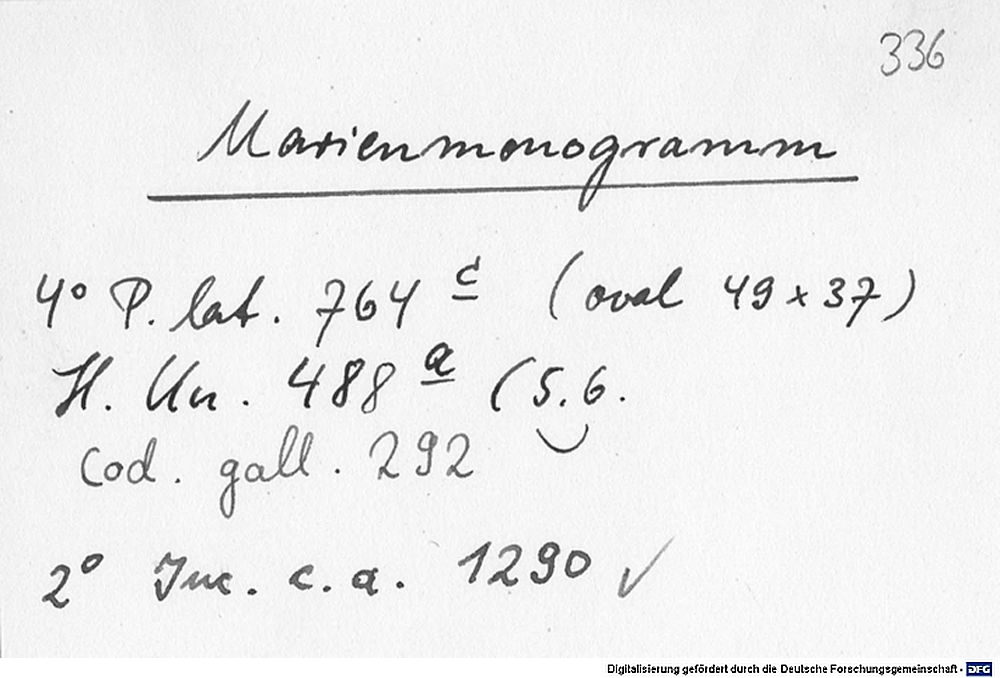 336
Marienmonogramm
4° P. lat. 764 c (oval 49 x 37)
H. Un. 488 a (5.6.
Cod. gall. 292
2° Inc. c. a. 1290 ✓
Digitalisierung gefördert durch die Deutsche Forschungsgemeinschaft - DFG